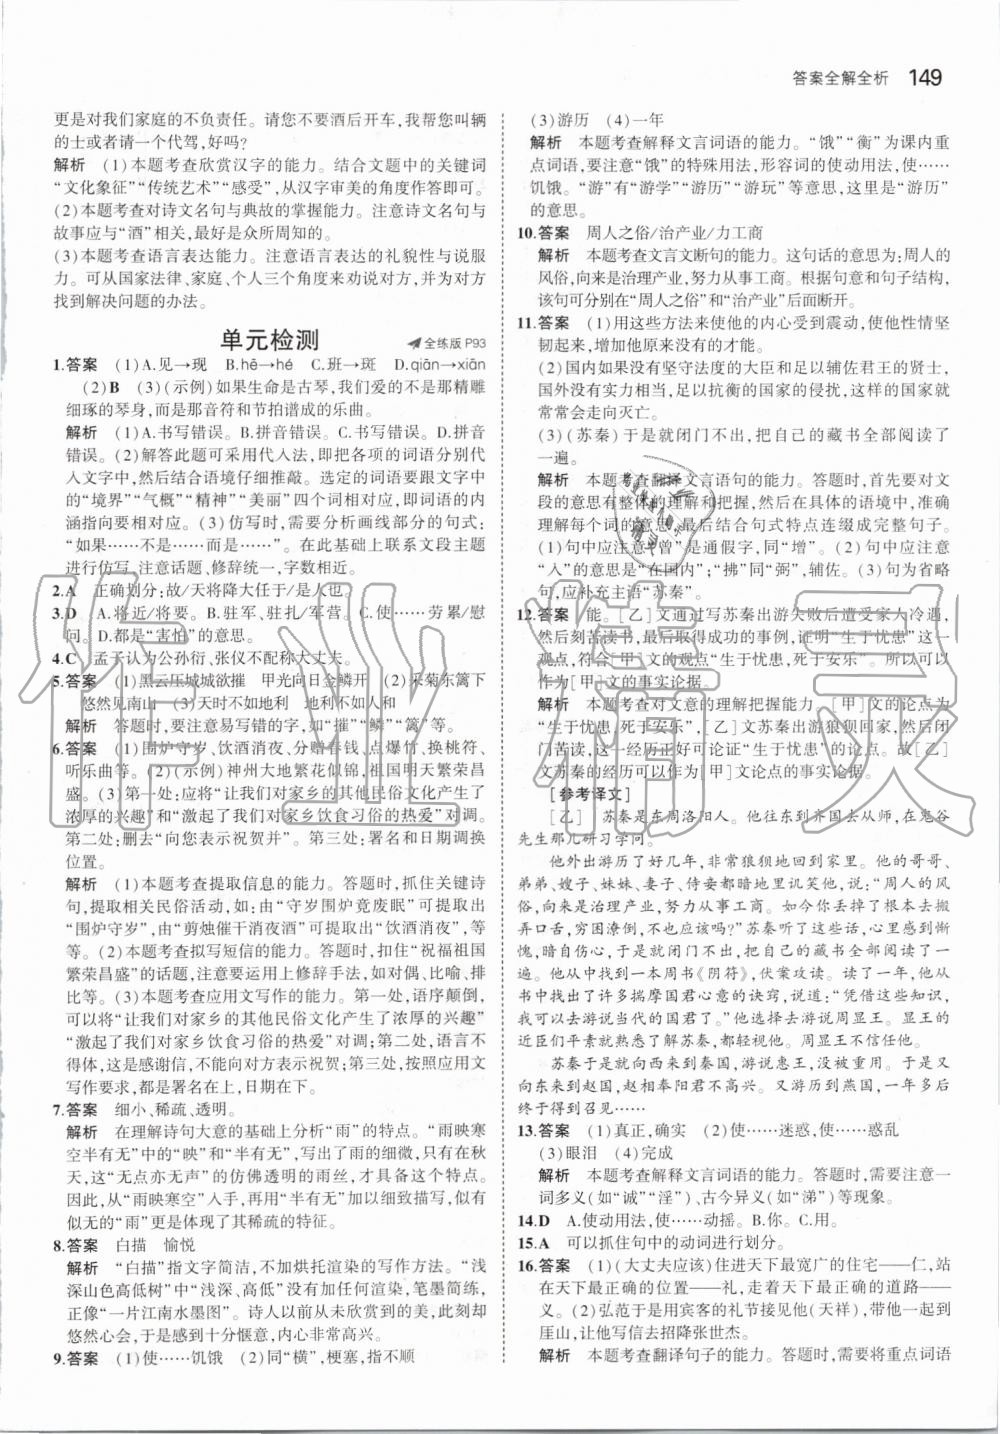 答案全解全析 149
更是对我们家庭的不负责任。请您不要酒后开车,我帮您叫辆
的士或者请一个代驾,好吗?
解析 (1)本题考查欣赏汉字的能力。结合文题中的关键词
“文化象征”“传统艺术”“感受”,从汉字审美的角度作答即可。
(2)本题考查对诗文名句与典故的掌握能力。注意诗文名句与
故事应与“酒”相关,最好是众所周知的。
(3)本题考查语言表达能力。注意语言表达的礼貌性与说服
力。可从国家法律、家庭、个人三个角度来劝说对方,并为对方
找到解决问题的办法。
单元检测 全练版 P93
1.答案 (1)A.见→现 B.hē→hé C.班→斑 D.qiān→xiān
(2)B (3)(示例)如果生命是古琴,我们爱的不是那精雕
细琢的琴身,而是那音符和节拍谱成的乐曲。
解析 (1)A.书写错误。B.拼音错误。C.书写错误。D.拼音
错误。(2)解答此题可采用代入法,即把各项的词语分别代
人文字中,然后结合语境仔细推敲。选定的词语要跟文字中
的“境界”“气概”“精神”“美丽”四个词相对应,即词语的内
涵指向要相对应。(3)仿写时,需要分析画线部分的句式:
“如果……不是……而是……”。在此基础上联系文段主题
进行仿写,注意话题、修辞统一,字数相近。
2.A 正确划分:故/天将降大任于/是人也。
3.D A.将近/将要。B.驻军、驻扎/军营。C.使……劳累/慰
问。D.都是“害怕”的意思。
4.C 孟子认为公孙衍、张仪不配称大丈夫。
5.答案 (1)黑云压城城欲摧 甲光向日金鳞开 (2)采菊东篱下
悠然见南山 (3)天时不如地利 地利不如人和
解析 答题时,要注意易写错的字,如“摧”“鳞”“篱”等。
6.答案 (1)围炉守岁、饮酒消夜、分赠春钱、点爆竹、换桃符、
听鼓乐等。(2)(示例)神州大地繁花似锦,祖国明天繁荣昌
盛。(3)第一处:应将“让我们对家乡的其他民俗文化产生了
浓厚的兴趣”和“激起了我们对家乡饮食习俗的热爱”对调。
第二处:删去“向您表示祝贺并”。第三处:署名和日期调换
位置。
解析 (1)本题考查提取信息的能力。答题时,抓住关键诗
句,提取相关民俗活动,如:由“守岁围炉竟废眠”可提取出
“围炉守岁”,由“剪烛催干消夜酒”可提取出“饮酒消夜”,等
等。(2)本题考查拟写短信的能力。答题时,扣住“祝福祖国
繁荣昌盛”的话题,注意要运用上修辞手法,如对偶、比喻、排
比等。(3)本题考查应用文写作的能力。第一处,语序颠倒,
可以将“让我们对家乡的其他民俗文化产生了浓厚的兴趣”
“激起了我们对家乡饮食习俗的热爱”对调;第二处,语言不
得体,这是感谢信,不能向对方表示祝贺;第三处,按照应用文
写作要求,都是署名在上,日期在下。
7.答案 细小、稀疏、透明。
解析 在理解诗句大意的基础上分析“雨”的特点。“雨映寒
空半有无”中的“映”和“半有无”,写出了雨的细微,尤其在秋
天,这“无点亦无声”的仿佛透明的雨丝,才具备这个特点。
因此,从“雨映寒空”入手,再用“半有无”加以细致描写,似有
似无的“雨”更是体现了其稀疏的特征。
8.答案 白描 愉悦
解析 “白描”指文字简洁,不加烘托渲染的描写方法。“浅
深山色高低树”中“浅深、高低”没有加任何渲染,笔墨简练,
正像“一片江南水墨图”。诗人以前从未欣赏到的美,此刻却
悠然心会,于是感到十分惬意,内心非常高兴。
9.答案 (1)使……饥饿 (2)同“横”,梗塞,指不顺
(3)游历 (4)一年
解析 本题考查解释文言词语的能力。“饿”“衡”为课内重
点词语,要注意“饿”的特殊用法,形容词的使动用法,使……
饥饿。“游”有“游学”“游历”“游玩”等意思,这里是“游历”
的意思。
10.答案 周人之俗/治产业/力工商
解析 本题考查文言文断句的能力。这句话的意思为:周人的
风俗,向来是治理产业,努力从事工商。根据句意和句子结构,
该句可分别在“周人之俗”和“治产业”后面断开。
11.答案 (1)用这些方法来使他的内心受到震动,使他性情坚
韧起来,增加他原来没有的才能。
(2)国内如果没有坚守法度的大臣和足以辅佐君王的贤士,
国外没有实力相当、足以抗衡的国家的侵扰,这样的国家就
常常会走向灭亡。
(3)(苏秦)于是就闭门不出,把自己的藏书全部阅读了
一遍。
解析 本题考查翻译文言语句的能力。答题时,首先要对文
段的意思有整体的理解和把握,然后在具体的语境中,准确
理解每个词的意思,最后结合句式特点连缀成完整句子。
(1)句中应注意“曾”是通假字,同“增”。(2)句中应注意
“入”的意思是“在国内”;“拂”同“弼”,辅佐。(3)句为省略
句,应补充主语“苏秦”。
12.答案 能。[乙]文通过写苏秦出游失败后遭受家人冷遇,
然后刻苦读书,最后取得成功的事例,证明“生于忧患”这一
观点,符合[甲]文的观点“生于忧患,死于安乐”。所以可以
作为[甲]文的事实论据。
解析 本题考查对文意的理解把握能力。[甲]文的论点为
“生于忧患,死于安乐”,[乙]文苏秦出游狼狈回家,然后闭
门苦读,这一经历正好可论证“生于忧患”的论点。故[乙]
文苏秦的经历可以作为[甲]文论点的事实论据。
[参考译文]
[乙] 苏秦是东周洛阳人。他曾向东到齐国去从师,在鬼谷
先生那儿研习学问。
他外出游历了好几年,非常狼狈地回到家里。他的哥哥、
弟弟、嫂子、妹妹、妻子、侍妾都暗地里讥笑他,说:“周人的风
俗,向来是治理产业,努力从事工商。如今你丢掉了根本去搬
弄口舌,穷困潦倒,不也是应该的吗?”苏秦听了这些话,心里感到惭
愧,暗自伤心,于是就闭门不出,把自己的藏书全部阅读了一
遍。他从中找到一本周书《阴符》,伏案攻读。读了一年,他从
书中找出了许多揣摩国君心意的诀窍,说道:“凭借这些知识,
我可以去游说当代的国君了。”他要求去游说周显王。显王的
近臣们平素就熟悉苏秦,都轻视他。周显王不信任他。
苏秦于是就向西来到秦国,游说惠王,没被重用。于是又
向东来到赵国,赵相奉阳君不高兴。又游历到燕国,一年多后
终于得到召见……
13.答案 (1)真正,确实 (2)使……迷惑,使……惑乱
(3)眼泪 (4)完成
解析 本题考查解释文言词语的能力。答题时,需要注意一
词多义(如“诚”“淫”)、古今异义(如“涕”)等现象。
14.D A.使动用法,使……动摇。B.你。C.用。
15.A 可以抓住句中的动词进行划分。
16.答案 (1)(大丈夫应该)住进天下最宽广的住宅——仁,站
在天下最正确的位置——礼,走着天下最正确的道路——
义。(2)弘范于是用宾客的礼节接见他(天祥),带他一起到
厓山,让他写信去招降张世杰。
解析 本题考查翻译句子的能力。答题时,需要将重点词语
作业精灵